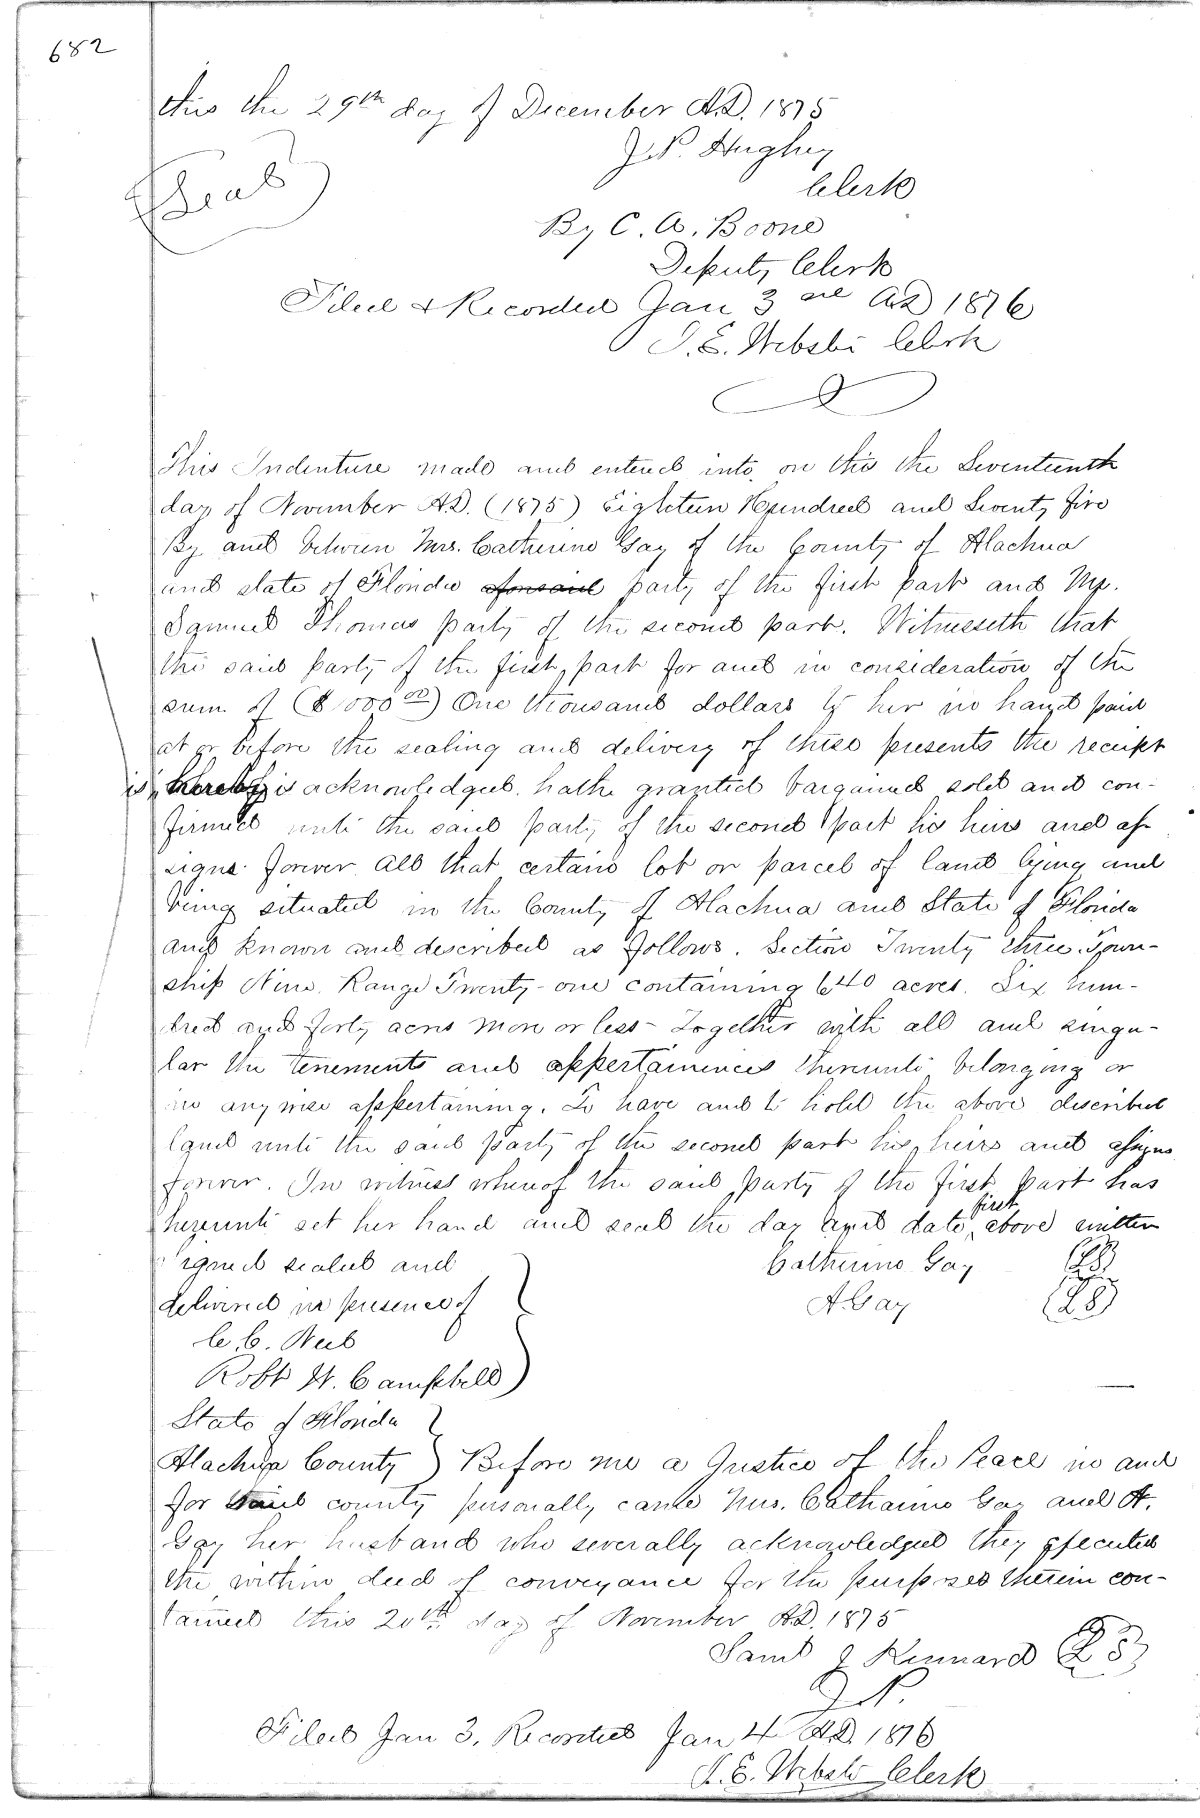 682
this the 29th day of December A.D. 1875
J. P. Hughey
(Seal)
Clerk
By C. A. Boone
Deputy Clerk
Filed & Recorded Jan 3rd AD 1876
J. E. Webster Clerk
This Indenture made and entered into on this the Seventeenth
day of November A.D. (1875) Eighteen Hundred and Seventy five
By and between Mrs. Catherine Gay of the County of Alachua
and state of Florida aforesaid party of the first part and Mr.
Samuel Thomas party of the second part. Witnesseth that
the said party of the first part for and in consideration of the
sum of ($1000 00) One thousand dollars to her in hand paid
at or before the sealing and delivery of these presents the receipt
is hereby is acknowledged. hathe granted bargained sold and con-
firmed unto the said party of the second part his heirs and as-
signs forever all that certain lot or parcel of land lying and
being situated in the County of Alachua and State of Florida
and known and described as follows. Section Twenty three Town-
ship Nine Range Twenty-one containing 640 acres. Six hun-
dred and forty acres more or less - Together with all and singu-
lar the tenements and appertainences thereunto belonging or
in any wise appertaining. To have and to hold the above described
land unto the said party of the second part his heirs and assigns
forever. In witness whereof the said party of the first part has
hereunto set her hand and seal the day and date first above written
Signed sealed and
Catherine Gay (LS)
delivered in presence of
A. Gay (LS)
C. C.
Robt W. Campbell
State of Florida
Alachua County } Before me a Justice of the Peace in and
for said county personally came Mrs. Catharine Gay and A.
Gay her husband who severally acknowledged they executed
the within deed of conveyance for the purposes therein con-
tained this 20th day of November AD. 1875
Saml J Kennard (LS)
J.P.
Filed Jan 3. Recorded Jan 4 A.D. 1876
J. E. Webster Clerk